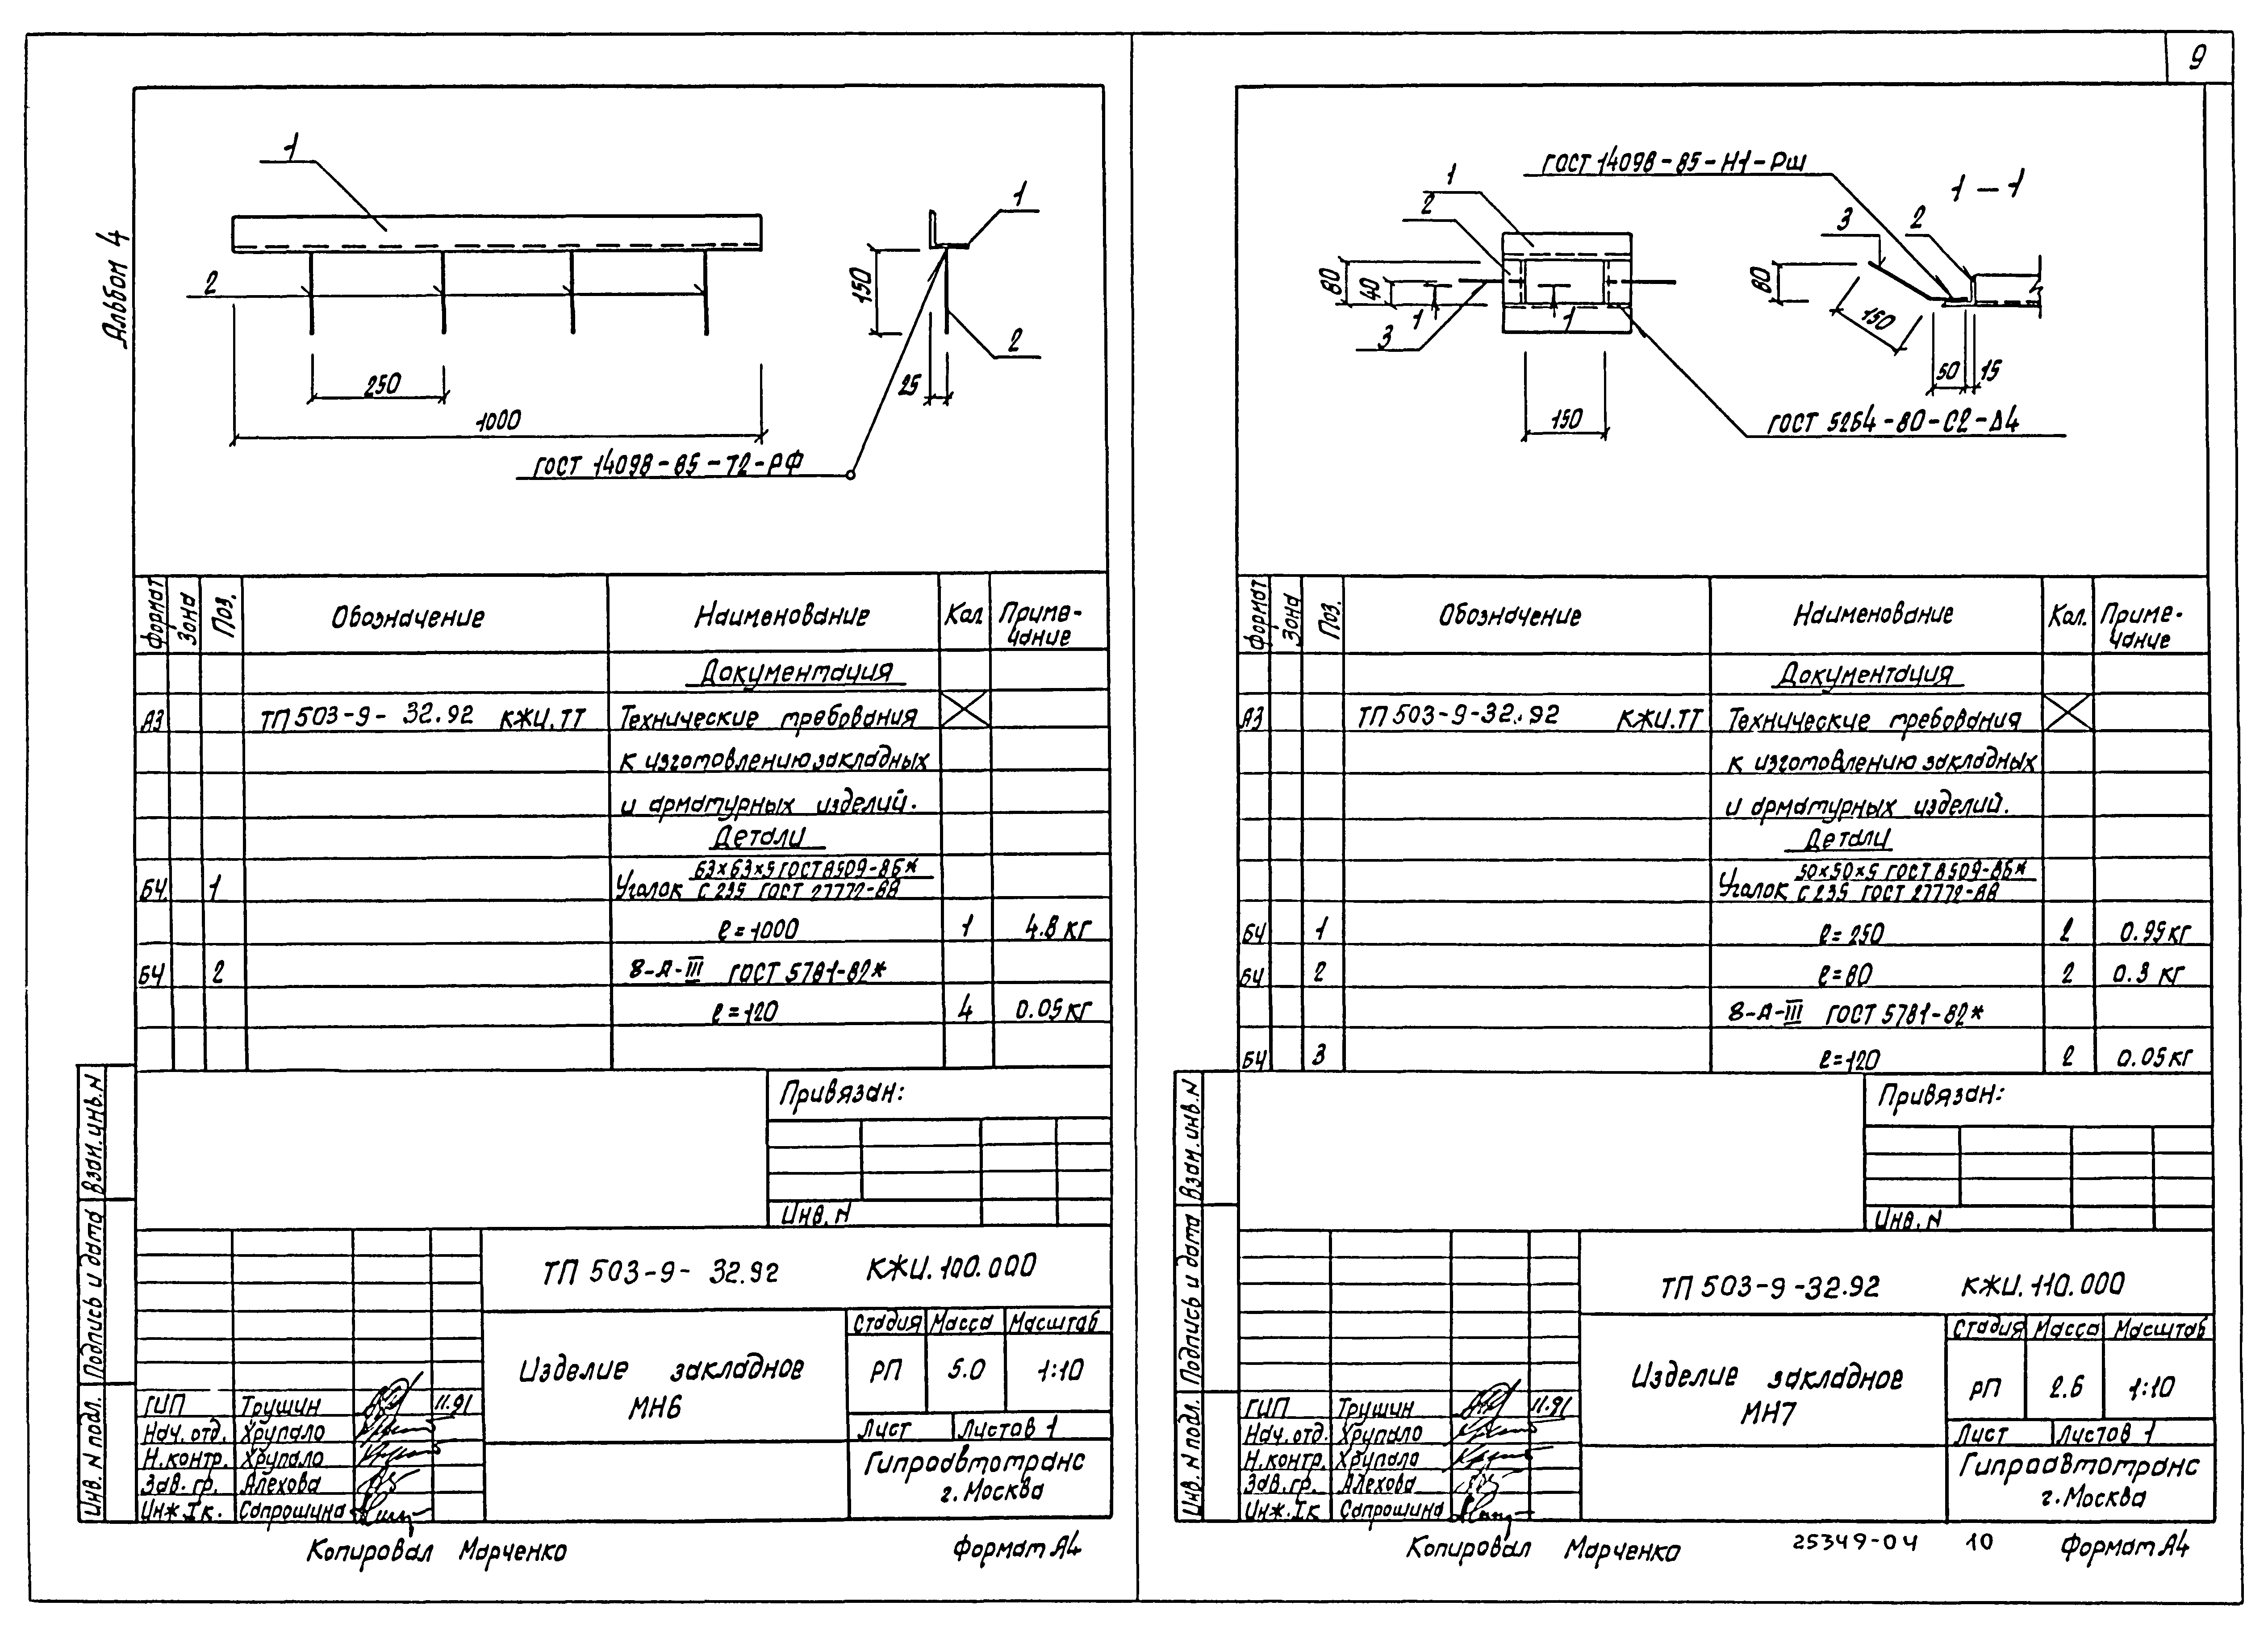 9
Альбом 4
1
2
250
1000
150
25
1
2
ГОСТ 14098-85-Т2-РФ
Формат Зона Поз. Обозначение Наименование Кол Приме-
чание
Документация
А3 ТП 503-9- 32.92 КЖИ.ТТ Технические требования
к изготовлению закладных
и арматурных изделий.
Детали
63×63×5 ГОСТ 8509-86*
БЧ. 1 Уголок С 235 ГОСТ 27772-88
ℓ=1000 1 4.8 кг
БЧ 2 8-А-III ГОСТ 5781-82*
ℓ=120 4 0.05 кг
Привязан:
Инв. N
Взам. инв. N
Подпись и дата
Инв. N подл.
ТП 503-9- 32.92 КЖИ.100.000
Изделие закладное
МН6
Стадия Масса Масштаб
РП 5.0 1:10
Лист Листов 1
Гипроавтотранс
г. Москва
ГИП Трушин 11.91
Нач. отд. Хрупало
Н.контр. Хрупало
Зав. гр. Алехова
Инж. Iк. Сапрошина
Копировал Марченко Формат А4
ГОСТ 14098-85-Н1-Рш
1
2
3
80
40
1
1
150
1-1
3
2
80
150
50
15
ГОСТ 5264-80-С2-Δ4
Формат Зона Поз. Обозначение Наименование Кол. Приме-
чание
Документация
А3 ТП 503-9-32.92 КЖИ.ТТ Технические требования
к изготовлению закладных
и арматурных изделий.
Детали
50×50×5 ГОСТ 8509-86*
Уголок С 235 ГОСТ 27772-88
БЧ 1 ℓ=250 2 0.95 кг
БЧ 2 ℓ=80 2 0.3 кг
8-А-III ГОСТ 5781-82*
БЧ 3 ℓ=120 2 0.05 кг
Привязан:
Инв. N
Взам. инв. N
Подпись и дата
Инв. N подл.
ТП 503-9-32.92 КЖИ.110.000
Изделие закладное
МН7
Стадия Масса Масштаб
РП 2.6 1:10
Лист Листов 1
Гипроавтотранс
г. Москва
ГИП Трушин 11.91
Нач. отд. Хрупало
Н.контр. Хрупало
Зав. гр. Алехова
Инж. Iк Сапрошина
Копировал Марченко 25349-04 10 Формат А4